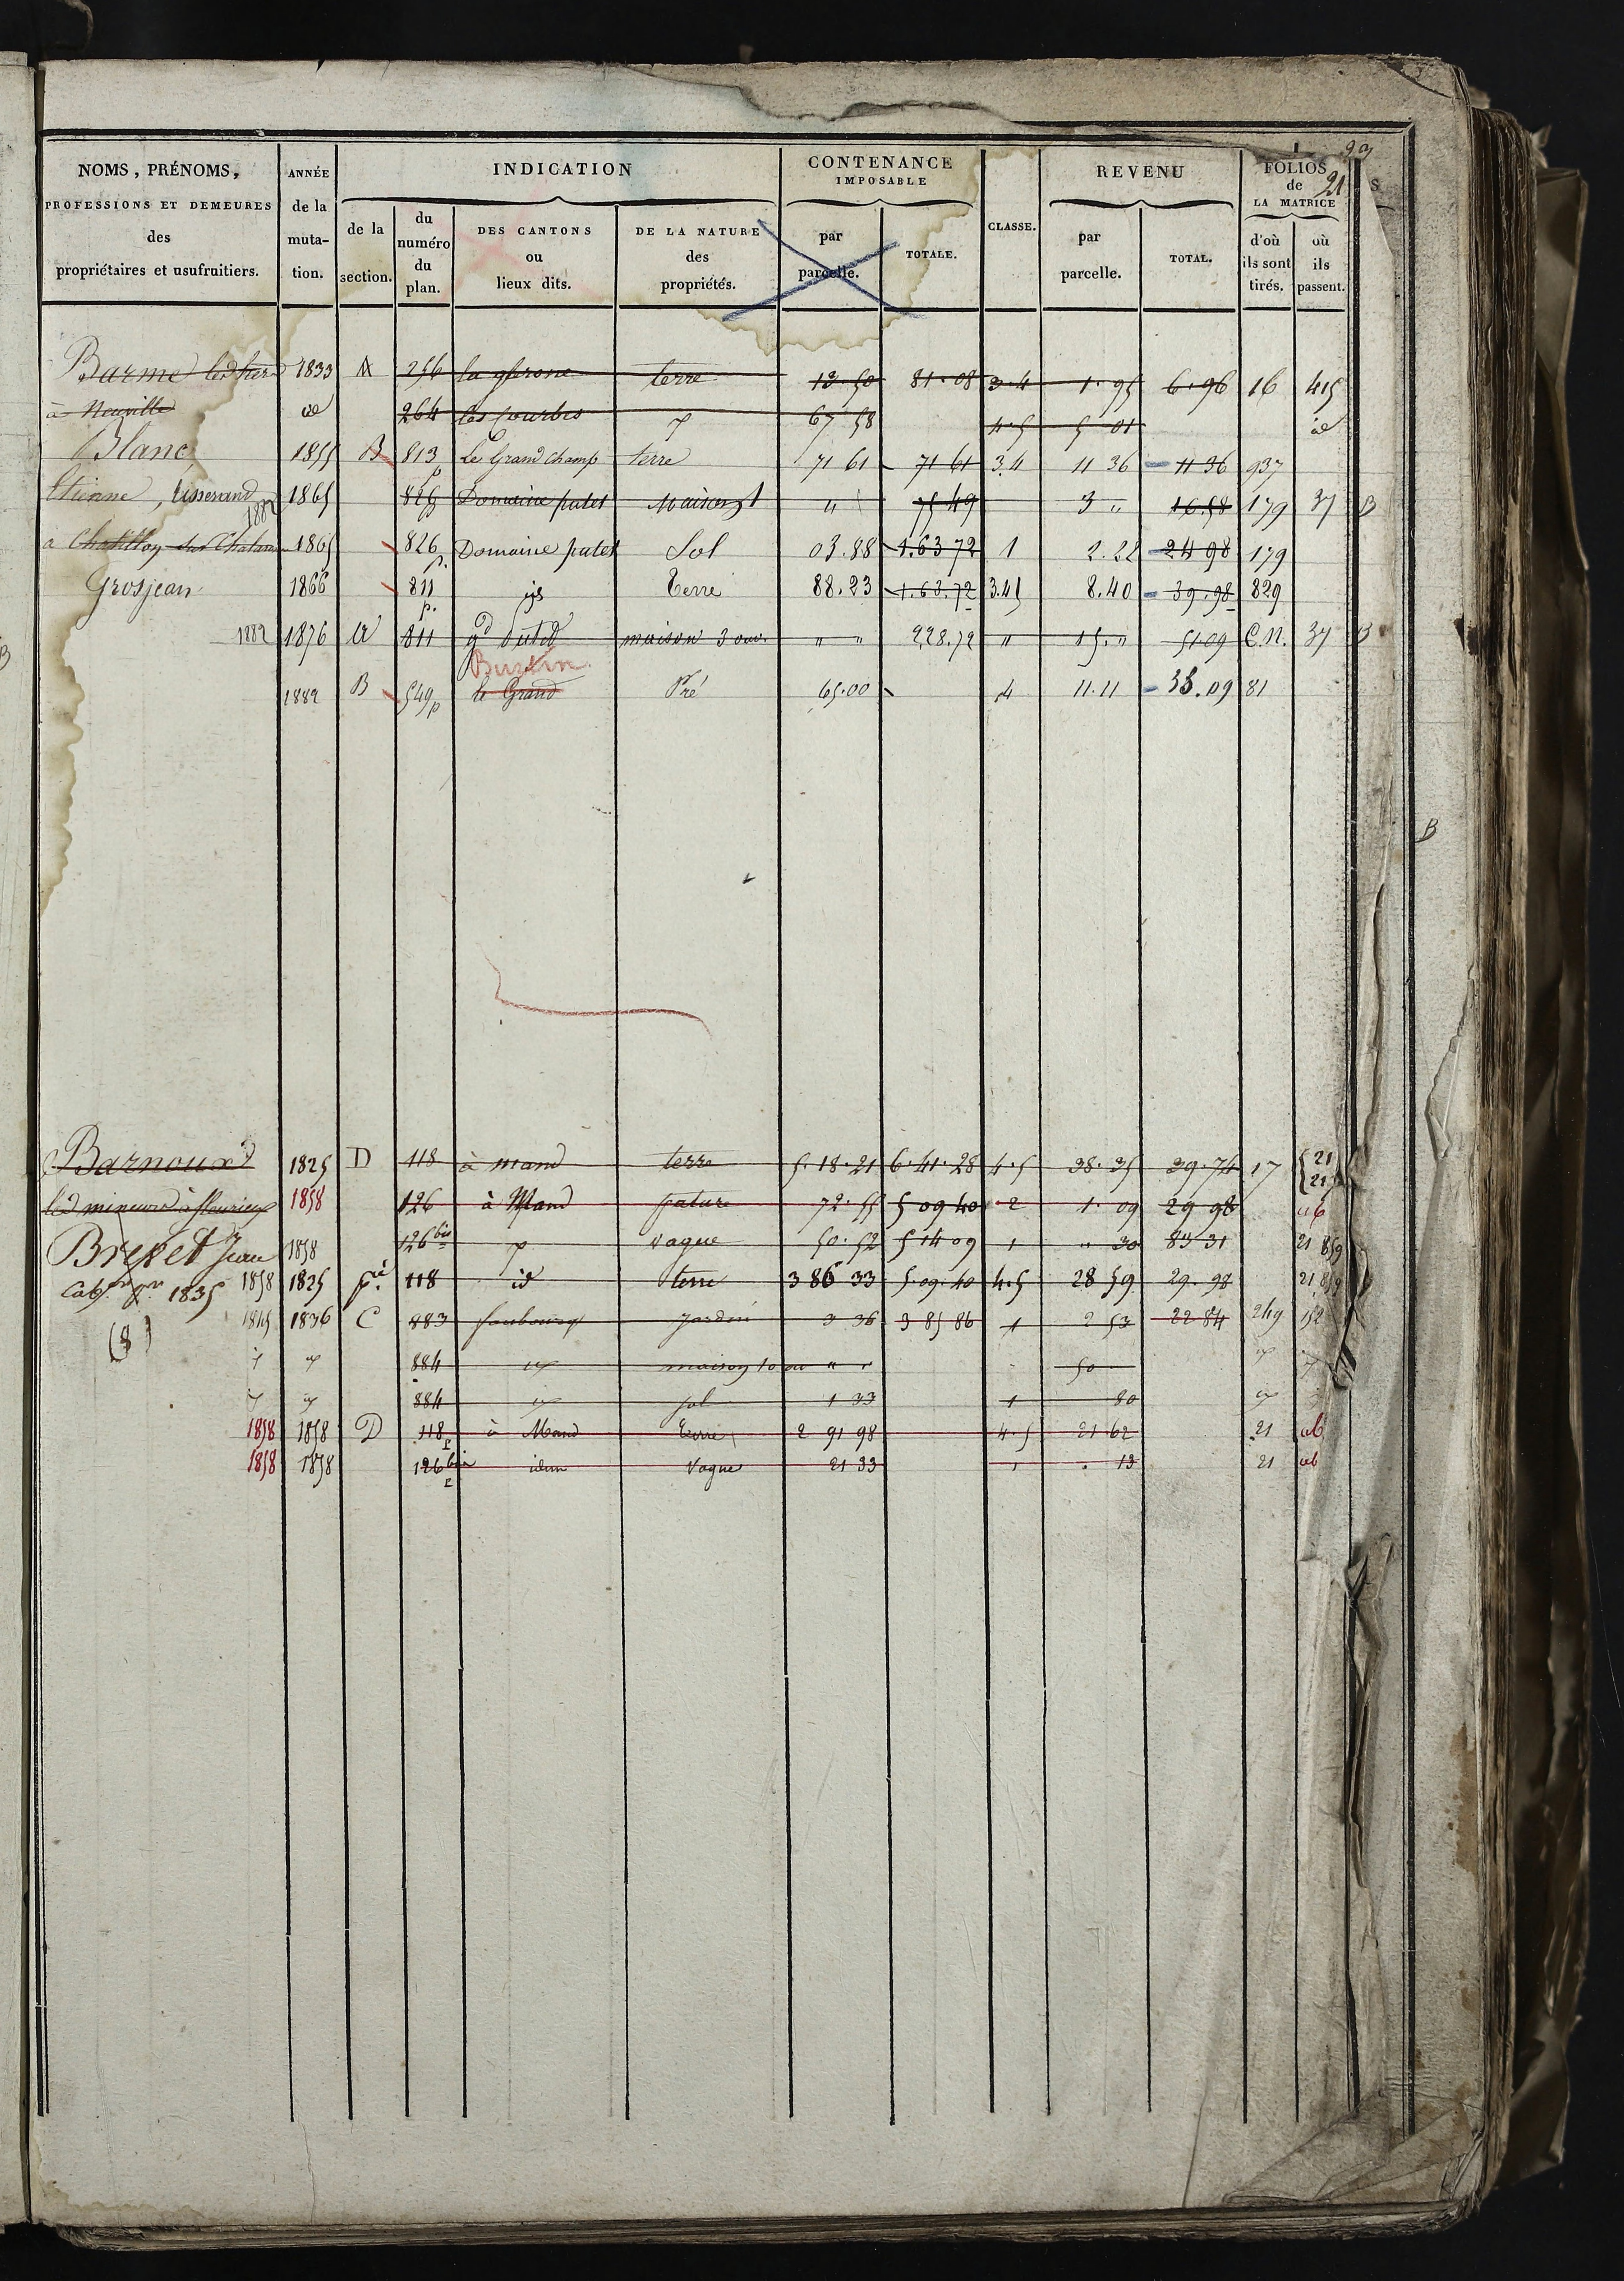 NOMS, PRÉNOMS, PROFESSIONS ET DEMEURES des propriétaires et usufruitiers.
ANNÉE de la muta- tion.
INDICATION
de la section.
du numéro du plan.
DES CANTONS ou lieux dits.
DE LA NATURE des propriétés.
CONTENANCE IMPOSABLE
par parcelle.
TOTALE.
CLASSE.
REVENU
par parcelle.
TOTAL.
FOLIOS de LA MATRICE
21
d'où ils sont tirés.
où ils passent.
Barme 1833 A 256 terre 13.50 81.08 3.4 1.95 6.96 16 415
à Neuville id 264 les Courbes 67 58 4.5 5 01 id
Blanc 1855 B 813 p Le Grand Champ terre 71 61 71 61 3.4 11 36 11 36 937
Etienne, tisserand 1882 1865 Domaine patet Maison " 75 49 3 " 16.58 179 37 B
a Chatillon sur Chalaronne 1865 826 p. Domaine patet Sol 03.88 1.63 72 1 2.22 24 98 179
Grosjean 1866 811 p. Terre 88.23 1.63.72 3.4 8.40 39.98 829
1882 1876 811 maison 3 ouv. " " 228.72 " 15." 51 09 C.N. 37 B
Buzin
1882 B 549 p le Grand Pré 65.00 4 11.11 36.09 81
B
Barnoux 1825 D 118 à mand terre 5.18.21 6.41.28 4.5 38.35 39.74 17 21 21
les mineurs à fleurieux 1858 126 à Mand pature 72.55 5 09 40 2 1.09 29 98 ab
Brevet Jean 1858 126 bis vague 50.52 5 14 09 1 " 30 83 31 21 859
Cab. 1835 1858 1825 pie 118 id terre 3 86 33 5.09.40 4.5 28 59 29.98 21 859
(8) 1845 1836 C 883 faubourg jardin 3 36 3 85 86 1 2 53 22 84 249 152
884 maison 10 ou " " 50
884 sol 1 33 1 80
1858 1858 D 118 p à Mand Terre 2 91 98 4.5 21.62 21 ab
1858 1858 126 bis p idem Vague 21 33 1 . 13 21 ab